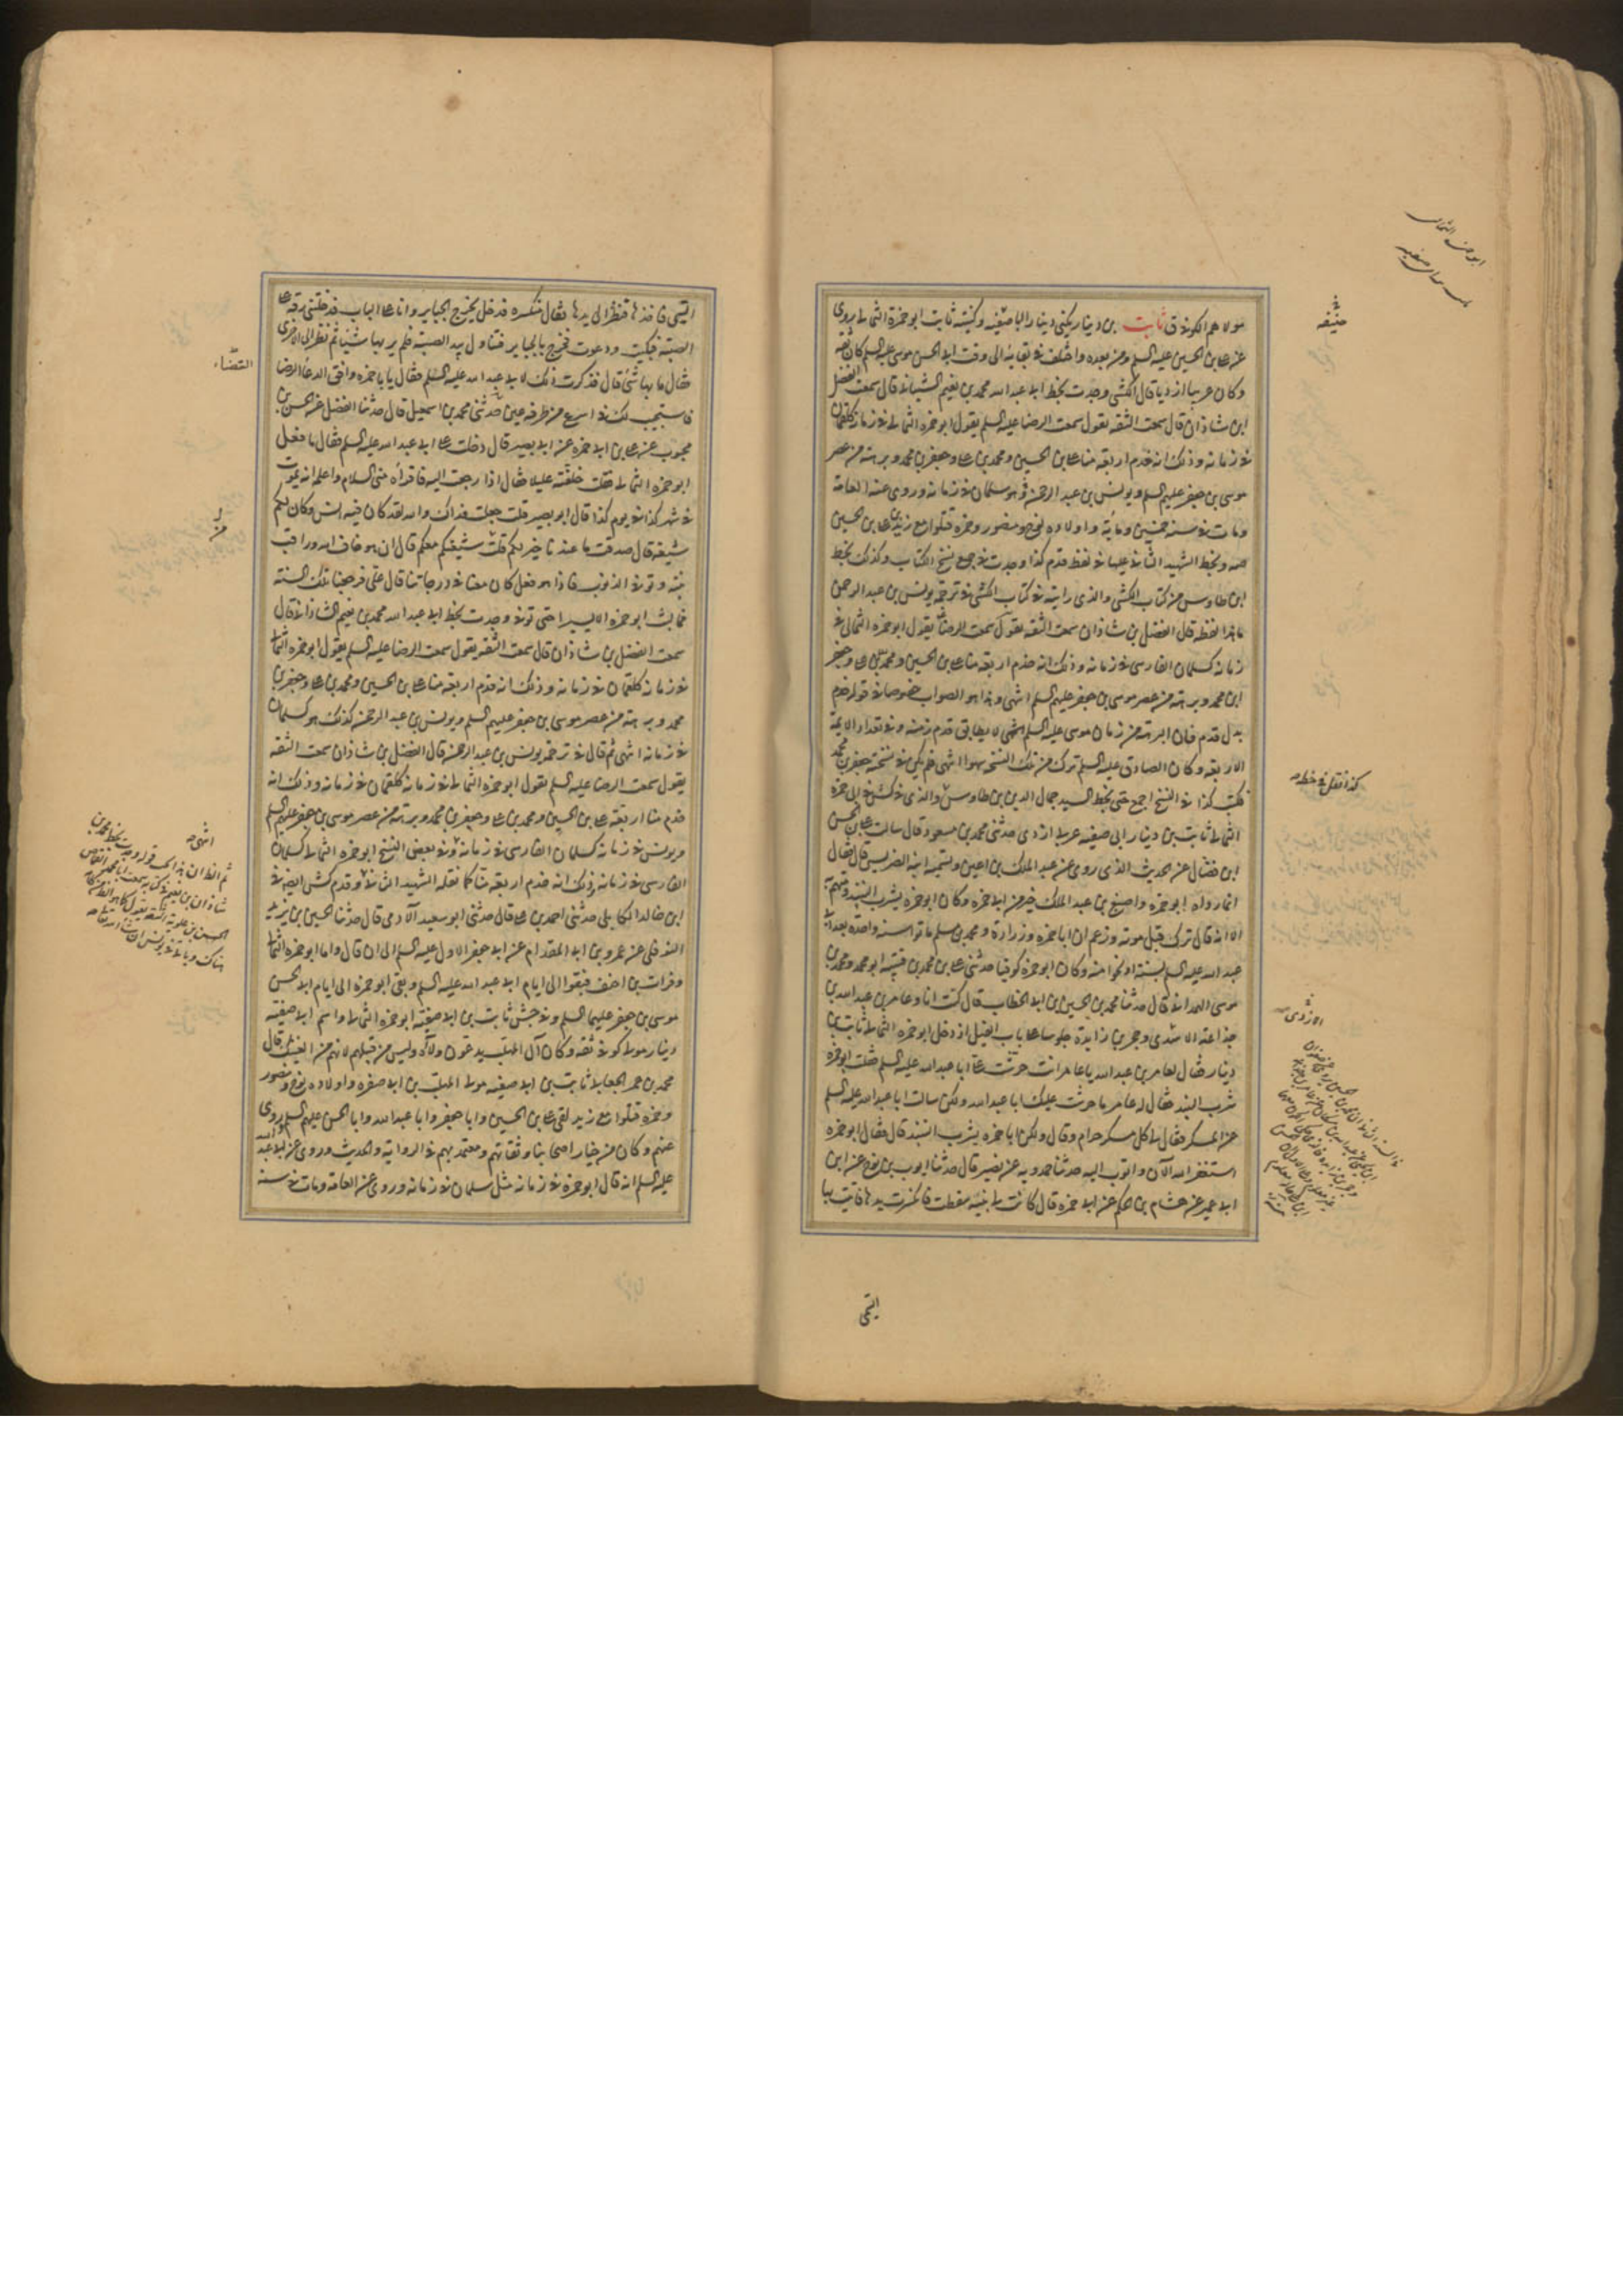 مولاهم الكوفي ق ثابت بن دينار يكنى دينار ابا صفيه وكنية ثابت ابو حمزة الثمالي روى
عن علي بن الحسين عليه السلم ومن بعده واختلف في بقائه الى وقت ابي الحسن موسى عليه السلم كان ثقه
وكان عربيا ازديا قال الكشي وجدت بخط ابي عبد الله محمد بن نعيم الشاذاني قال سمعت الفضل
ابن شاذان قال سمعت الثقه يقول سمعت الرضا عليه السلم يقول ابو حمزه الثمالي في زمانه كلقمان
في زمانه وذلك انه خدم اربعة منا علي بن الحسين ومحمد بن علي وجعفر بن محمد وبرهة من عصر
موسى بن جعفر عليهم السلم ويونس بن عبد الرحمن هو سلمان في زمانه وروى عنه العامة
ومات في سنه خمسين ومائة واولاده نوح ومنصور وحمزه قتلوا مع زيد بن علي بن الحسين
صه وبخط الشهيد الثاني عليها في لفظ قدم كذا وجدت في جميع نسخ الكتاب وكذلك بخط
ابن طاوس من كتاب الكشي والذي رايته في كتاب الكشي في ترجمة يونس بن عبد الرحمن
ما هذا لفظه قال الفضل بن شاذان سمعت الثقه يقول سمعت الرضا يقول ابو حمزه الثمالي في
زمانه كسلمان الفارسي في زمانه وذلك انه خدم اربعة منا علي بن الحسين ومحمد بن علي وجعفر
ابن محمد وبرهة من عصر موسى بن جعفر عليهم السلم انتهى وهذا هو الصواب خصوصا في قوله خدم
بدل قدم فان البرهة من زمان موسى عليه السلم انتهى لا يطابق قدم زمنه وفي تعداد الائمة
الاربعة وكان الصادق عليه السلم ترك من تلك النسخة سهوا انتهى فلم يكن في نسخته جعفر بن محمد
فكتب كذا في النسخ اجمع حتى بخط السيد جمال الدين بن طاوس والذي في كش في ابي حمزه
الثمالي ثابت بن دينار ابي صفيه عربي ازدي حدثني محمد بن مسعود قال سالت علي بن الحسن
ابن فضال عن الحديث الذي روى عن عبد الملك بن اعين وتسمية ابنه الضريس قال فقال
انما رواه ابو حمزه واصبغ بن عبد الملك خير من ابي حمزه وكان ابو حمزه يشرب النبيذ ومتهم به
الا انه قال ترك قبل موته وزعم ان ابا حمزه وزراره ومحمد بن مسلم ماتوا سنه واحده بعد ابي
عبد الله عليه السلم بسنة او نحو منه وكان ابو حمزه كوفيا حدثني علي بن محمد بن قتيبه ابو محمد ومحمد بن
موسى الهمداني قال حدثنا محمد بن الحسين بن ابي الخطاب قال كنت انا وعامر بن عبد الله بن
جذاعة الازدي وحجر بن زايده جلوسا على باب الفيل اذ دخل ابو حمزه الثمالي ثابت بن
دينار فقال لعامر بن عبد الله يا عامر انت حرشت علي ابا عبد الله عليه السلم فقلت ابو حمزه
يشرب النبيذ فقال له عامر ما حرشت عليك ابا عبد الله ولكن سالت ابا عبد الله عليه السلم
عن المسكر فقال لي كل مسكر حرام وقال ولكن ابا حمزه يشرب النبيذ قال فقال ابو حمزه
استغفر الله الآن واتوب اليه حدثنا حمدويه عن نصير قال حدثنا ايوب بن نوح عن ابن
ابي عمير عن هشام بن الحكم عن ابي حمزه قال كانت لي بنيه سقطت فانكسرت يدها فاتيت بها
التيمي
كذا نقل في خطه
ابو حمزه الثمالي
التيمي فاخذها فنظر الى يدها فقال منكسره فدخل يخرج الجباير وانا على الباب فدخلتني رقة على
الصبية فبكيت ودعوت فخرج بالجباير فتناول بيد الصبية فلم ير بها شيئا ثم نظر الى الاخرى
فقال ما بها شئ قال فذكرت ذلك لابي عبد الله عليه السلم فقال يا با حمزه وافق الدعا الرضا
فاستجيب لك في اسرع من طرفة عين حدثني محمد بن اسمعيل قال حدثنا الفضل عن الحسن بن
محبوب عن علي بن ابي حمزه عن ابي بصير قال دخلت على ابي عبد الله عليه السلم فقال ما فعل
ابو حمزه الثمالي فقلت خلفته عليلا فقال اذا رجعت اليه فاقراه مني السلام واعلمه انه يموت
في شهر كذا في يوم كذا قال ابو بصير قلت جعلت فداك والله لقد كان فيه انس وكان لكم
شيعة قال صدقت ما عندنا خير لكم قلت شيعتكم معكم قال ان هو خاف الله وراقب
نبيه وتوقى الذنوب فاذا هو فعل كان معنا في درجاتنا قال علي فرجعنا تلك السنه
فما لبث ابو حمزه الا يسيرا حتى توفى وجدت بخط ابي عبد الله محمد بن نعيم الشاذاني قال
سمعت الفضل بن شاذان قال سمعت الثقه يقول سمعت الرضا عليه السلم يقول ابو حمزه الثمالي
في زمانه كلقمان في زمانه وذلك انه قدم اربعة منا علي بن الحسين ومحمد بن علي وجعفر بن
محمد وبرهة من عصر موسى بن جعفر عليهم السلم ويونس بن عبد الرحمن كذلك هو كسلمان
في زمانه انتهى ثم قال في ترجمة يونس بن عبد الرحمن قال الفضل بن شاذان سمعت الثقه
يقول سمعت الرضا عليه السلم يقول ابو حمزه الثمالي في زمانه كلقمان في زمانه وذلك انه
خدم منا اربعة علي بن الحسين ومحمد بن علي وجعفر بن محمد وبرهة من عصر موسى بن جعفر عليهم السلم
ويونس في زمانه كسلمان الفارسي في زمانه وفي بعض النسخ ابو حمزه الثمالي كسلمان
الفارسي في زمانه وذلك انه خدم اربعة منا كما نقله الشهيد الثاني وقدم كش ايضا في
ابي خالد الكابلي حدثني احمد بن علي قال حدثني ابو سعيد الآدمي قال حدثنا الحسين بن يزيد
النوفلي عن عمرو بن ابي المقدام عن ابي جعفر الاول عليه السلم الى ان قال واما ابو حمزه الثمالي
وفرات بن احنف فبقوا الى ايام ابي عبد الله عليه السلم وبقى ابو حمزه الى ايام ابي الحسن
موسى بن جعفر عليهما السلم وفي جش ثابت بن ابي صفيه ابو حمزه الثمالي واسم ابي صفيه
دينار مولى كوفي ثقه وكان آل المهلب يدعون ولاءه وليس من قبلهم لانهم من العتيك قال
محمد بن عمر الجعابي ثابت بن ابي صفيه مولى المهلب بن ابي صفره واولاده نوح ومنصور
وحمزه قتلوا مع زيد لقى علي بن الحسين وابا جعفر وابا عبد الله وابا الحسن عليهم السلم وروى
عنهم وكان من خيار اصحابنا وثقاتهم ومعتمديهم في الرواية والحديث وروى عن ابي عبد الله
عليه السلم انه قال ابو حمزه في زمانه مثل سلمان في زمانه وروى عنه العامه ومات في سنه
انتهى